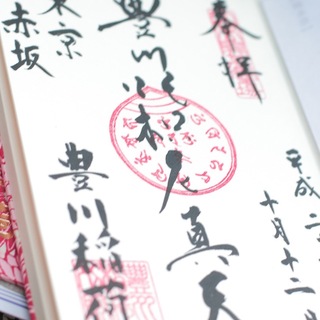 奉拝
平成二
十月十二
豊川吒枳尼真天
東京
赤坂
豊川稲荷